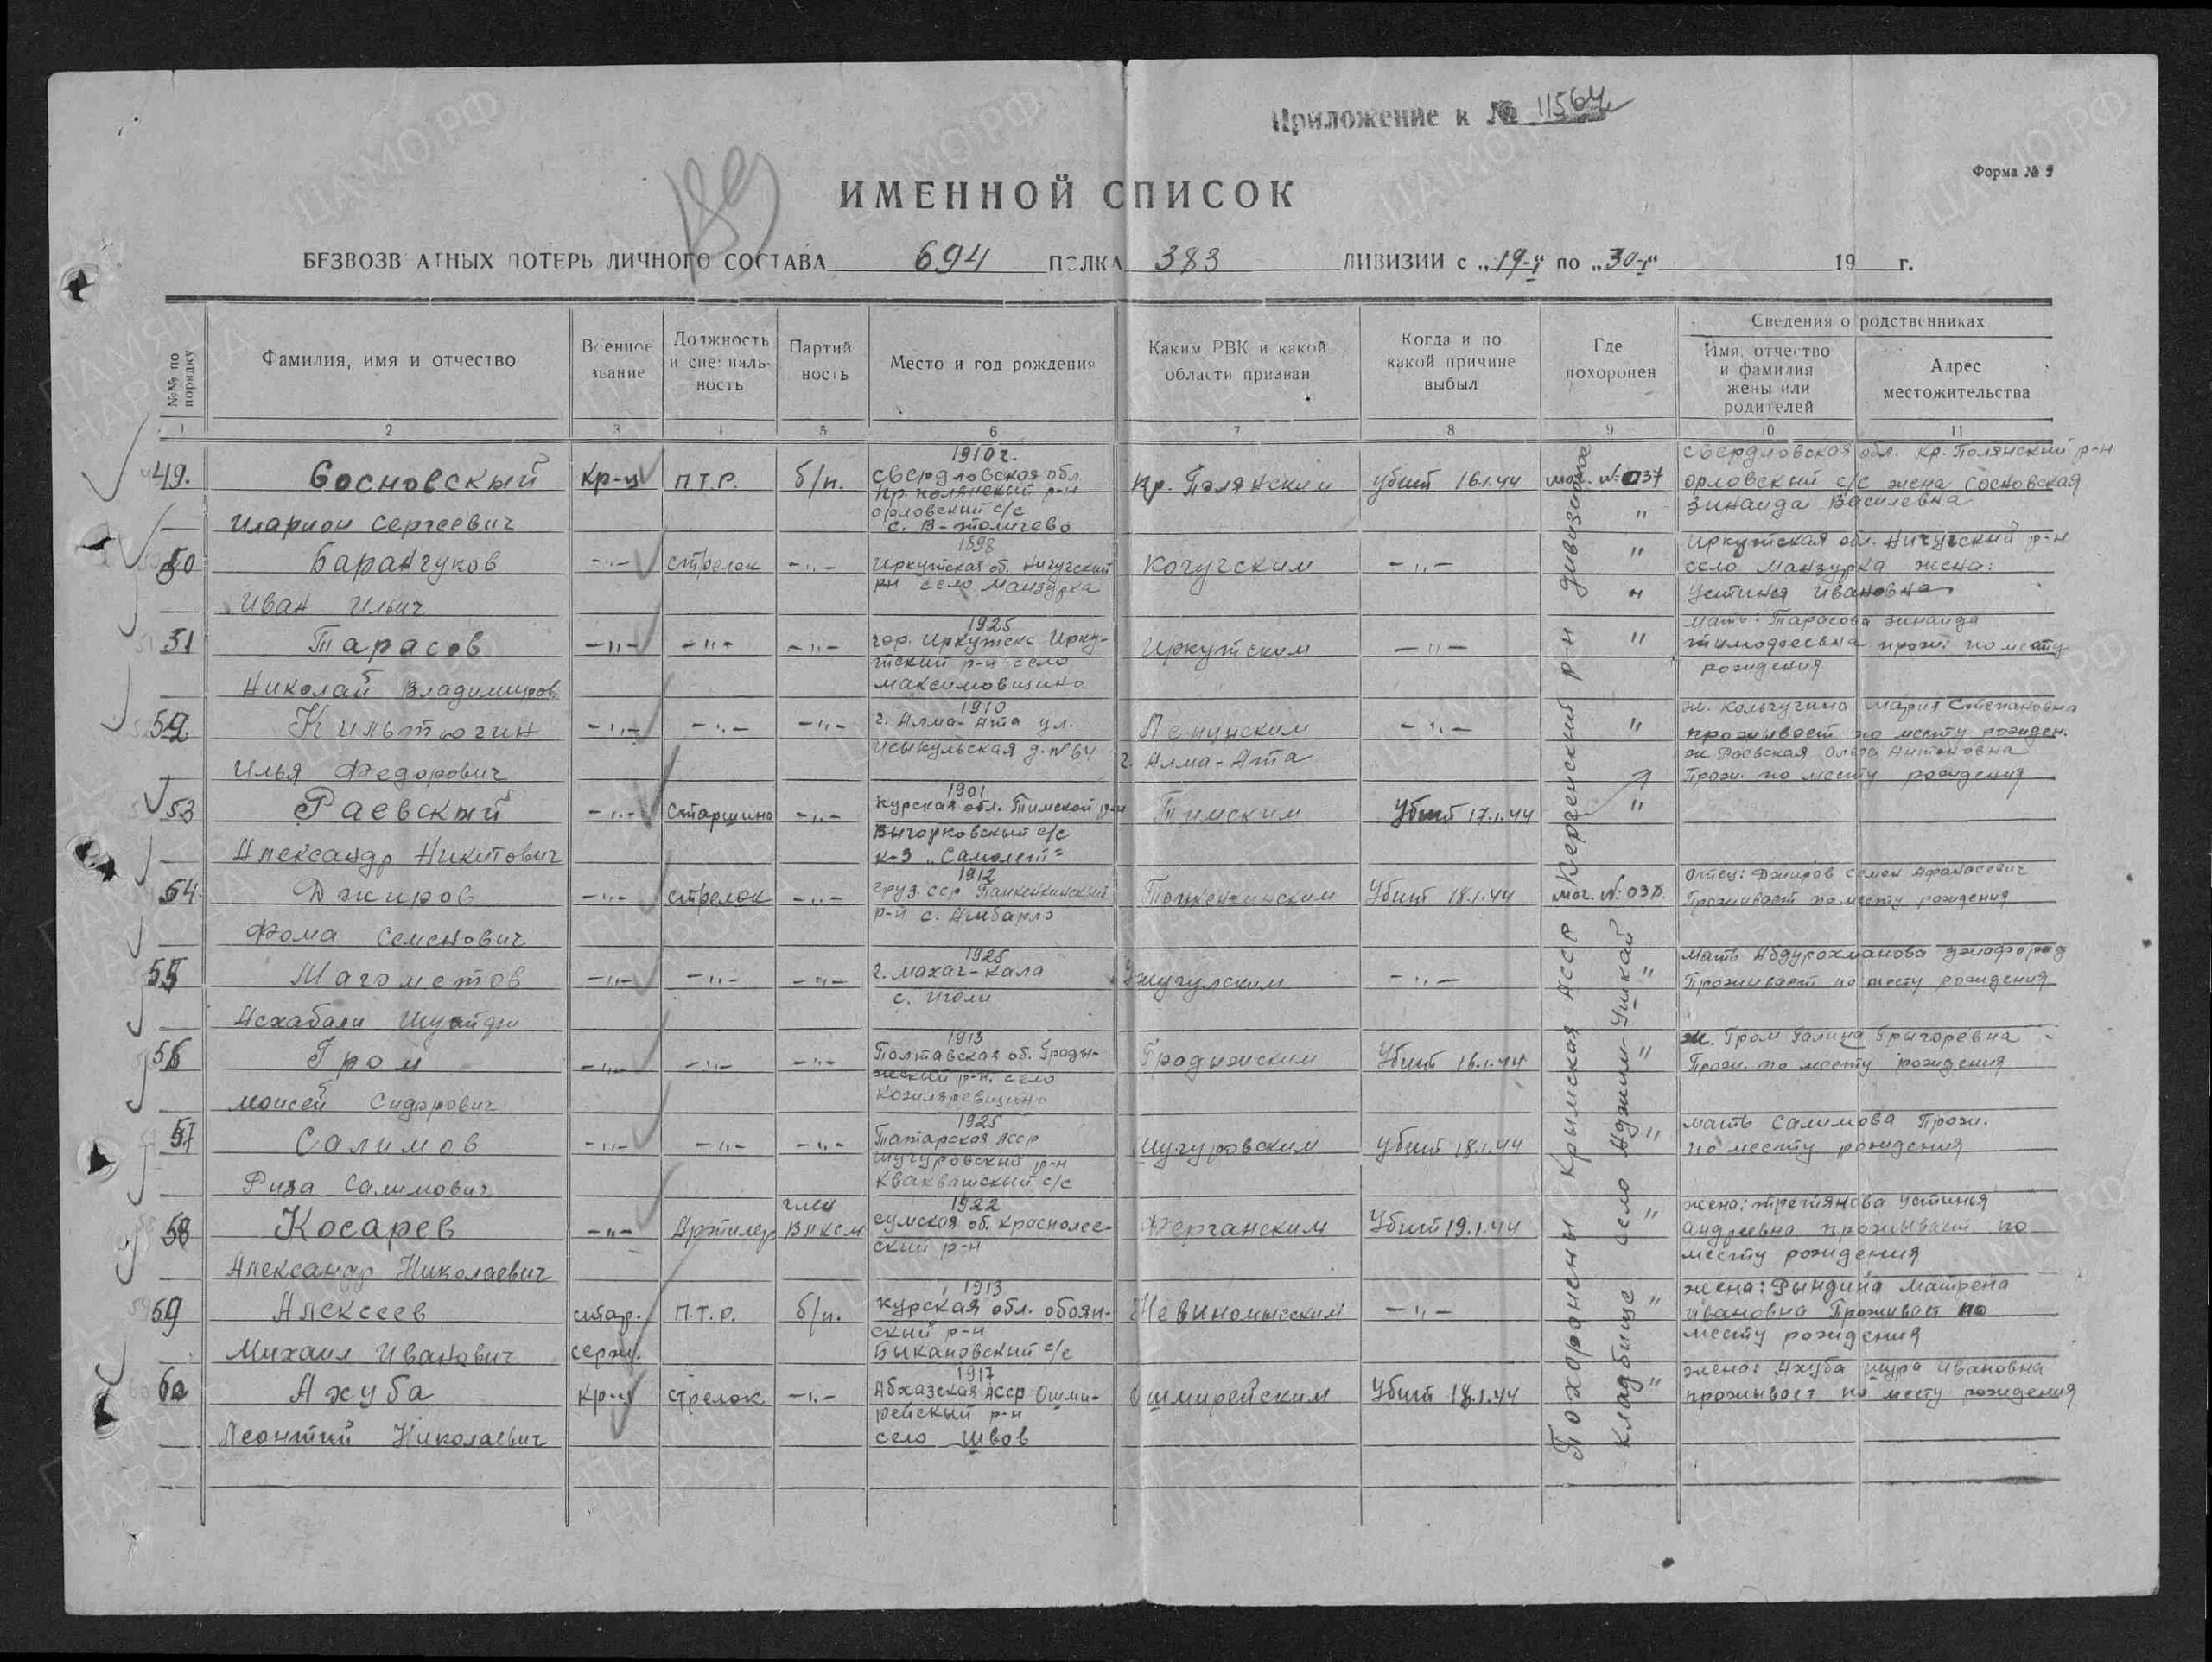 Приложение к № 11564
Форма № 9
189
ИМЕННОЙ СПИСОК
БЕЗВОЗВ АТНЫХ ПОТЕРЬ ЛИЧНОГО СОСТАВА 694 ПОЛКА 383 ДИВИЗИИ с „19-1“ по „30-1“ 19 г.
№№ по порядку
Фамилия, имя и отчество
Военное звание
Должность и специальность
Партийность
Место и год рождения
Каким РВК и какой области призван
Когда и по какой причине выбыл
Где похоронен
Сведения о родственниках
Имя, отчество и фамилия жены или родителей
Адрес местожительства
1 2 3 4 5 6 7 8 9 10 11
49. Сосновский Кр-ц П.Т.Р. б/п. 1910 г. Кр. Полянским Убит 16.1.44 мог. № 037
Иларион Сергеевич
Свердловская обл.
Кр. Полянский р-н
орловский с/с
с. В-
Свердловская обл. Кр. Полянский р-н
орловский с/с жена Сосновская
Зинаида Василевна
50 Барангуков -„- стрелок -„- 1898 Качугским -„- "
Иван Ильич
Иркутская об.
рн село Манзурка
Иркутская обл. р-н
село Манзурка жена:
Устинья Ивановна
51 Тарасов -„- -„- -„- 1925 Иркутским -„- "
Николай Владимиров.
гор. Иркутск Ирку-
тский р-н село
Максимовщина
Мать: Тарасова Зинаида
прож. по месту
рождения
52. Кильтогин -„- -„- -„- 1910 Ленинским -„- "
Илья Федорович
г. Алма-Ата ул.
Исыкульская д. № 64
г. Алма-Ата
ж. Кольчугина Мария Степановна
проживает по месту рожден.
53 Раевский -„- Старшина -„- 1901 Тимским Убит 17.1.44 "
Александр Никитович
Курская обл. Тимской р-н
с/с
к-з „Самолет“
ж. Раевская Ольга Антоновна
Прож. по месту рождения
54. Джиров -„- стрелок -„- 1912 Убит 18.1.44 мог. № 038.
Фома Семенович
Груз. сср
р-н с. Амбарло
Отец: Джиров Семен Афанасевич
Проживает по месту рождения
55 Магометов -„- -„- -„- 1925 -„- "
Асхабали
г. Махач-Кала
с.
Мать Абдурохманова
Проживает по месту рождения
56 Гром -„- -„- -„- 1913 Градижским Убит 16.1.44 "
Моисей Сидорович
Полтавская об. Гради-
жский р-н. село
ж. Гром Галина Григоревна
Прож. по месту рождения
57 Салимов -„- -„- -„- 1925 Шугуровским Убит 18.1.44 "
Риза Салимович
Татарская АССР
Шугуровский р-н
Кваквашский с/с
мать Салимова Прож.
по месту рождения
58 Косарев -„- Артилер член ВЛКСМ 1922 Ферганским Убит 19.1.44 "
Александр Николаевич
Сумская об. Краснопес-
ский р-н
жена: Третянова Устинья
Андреевна проживает по
месту рождения
59 Алексеев стар. П.Т.Р. б/п. 1913 Невиномысский -„- "
Михаил Иванович серж.
Курская обл. обоян-
ский р-н
Быкановский с/с
жена: Рындина Матрена
Ивановна Проживает по
месту рождения
60 Ахуба Кр-ц стрелок -„- 1917 Очимчирейским Убит 18.1.44 "
Леонтий Николаевич
Абхазская АССР
рейский р-н
село Швов
жена: Ахуба Шура Ивановна
проживает по месту рождения
Похоронены Крымская АССР Керченский р-н дивизионное
кладбище село Аджим-Ушкай